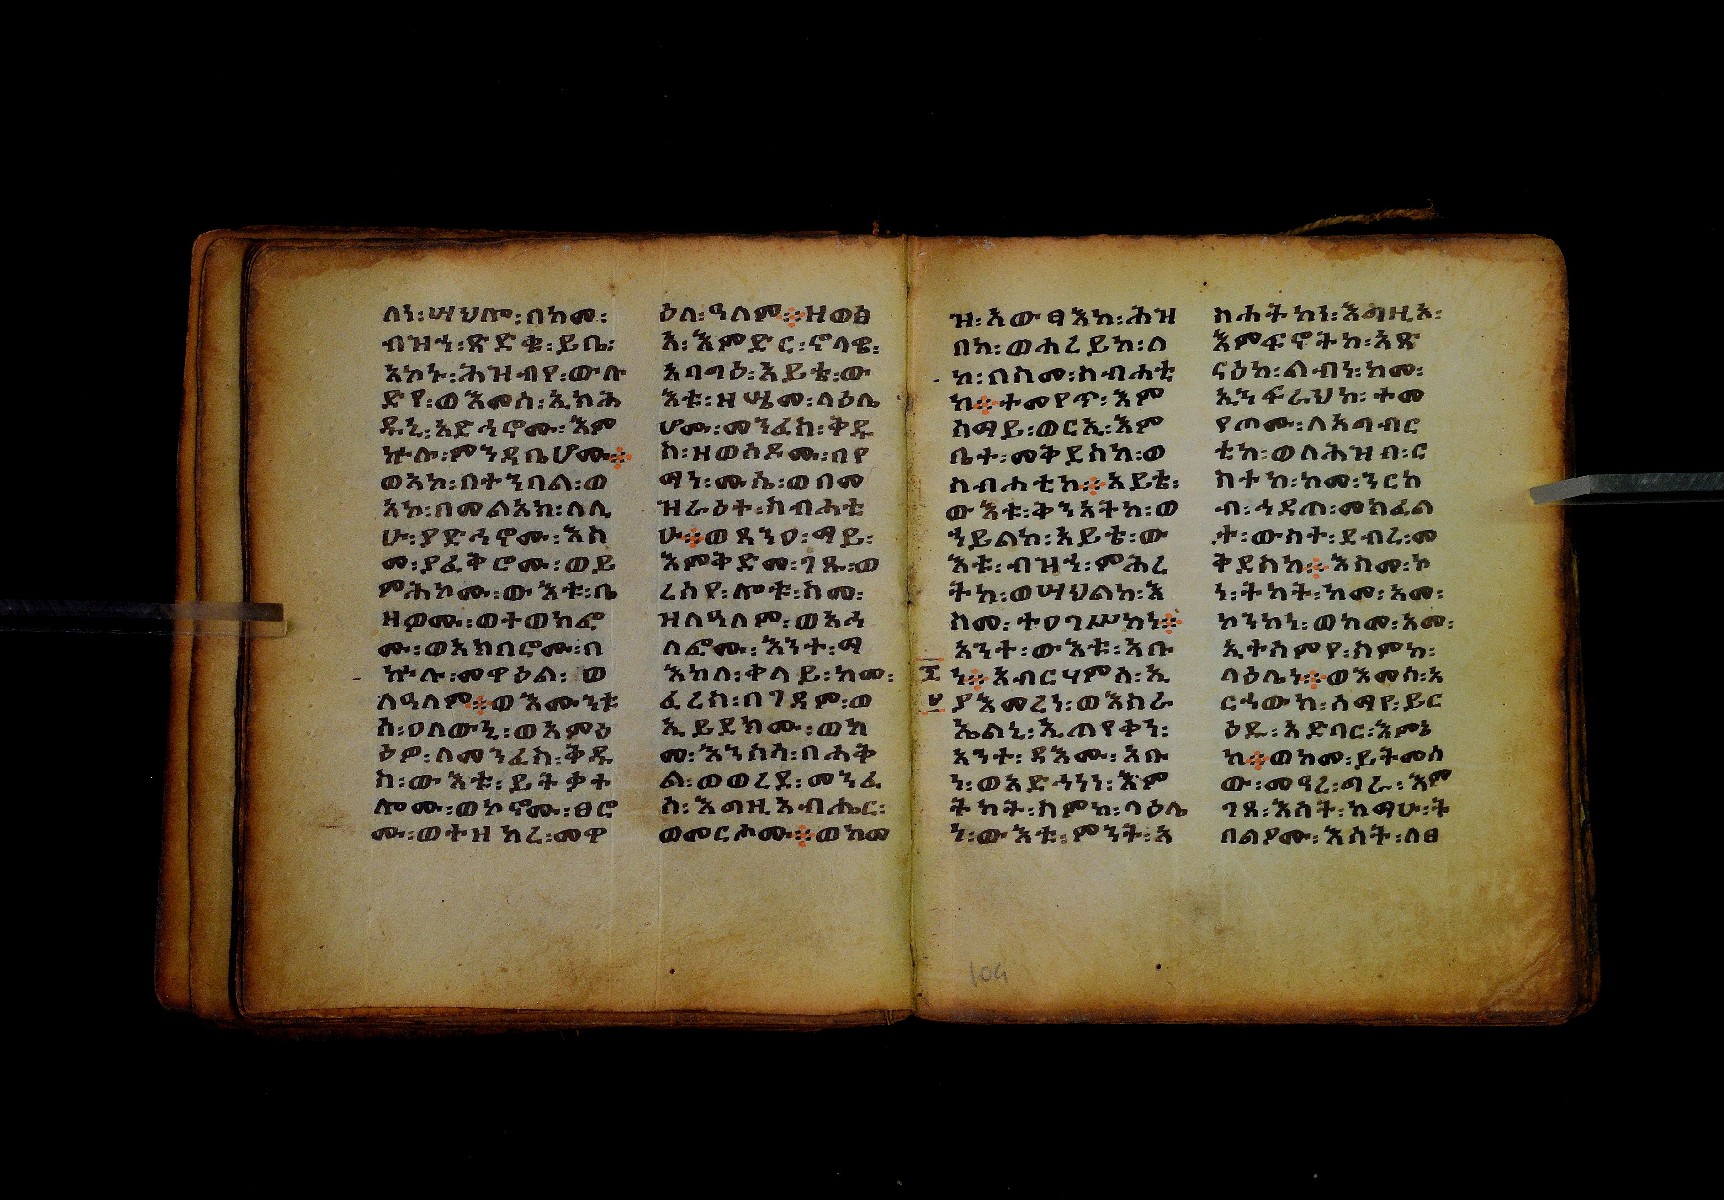 ለነ፡ሣህሎ፡በከመ፡
ብዝኀ፡ጽድቁ፡ይቤ፡
አኮኑ፡ሕዝብየ፡ውሉ
ድየ፡ወእመሰ፡ኢክሕ
ዱኒ፡አድኃኖሙ፡እም
ኵሉ፡ምንዳቤሆሙ፨
ወአኮ፡በተንባል፡ወ
አኮ፡በመልአክ፡ለሊ
ሁ፡ያድኃኖሙ፡እስ
መ፡ያፈቅሮሙ፡ወይ
ምሕኮሙ፡ውእቱ፡ቤ
ዘወሙ፡ወተወክፎ
ሙ፡ወአክበሮሙ፡በ
ኵሉ፡መዋዕል፡ ወ
ለዓለም፨ወእሙንቱ
ሰ፡ዐለውኒ፡ወአምዕ
ዕዎ፡ለመንፈስ፡ቅዱ
ስ፡ውእቱ፡ይትቃተ
ሎሙ፡ወኮኖሙ፡ፀሮ
ሙ፡ወተዘከረ፡መዋ
ዕለ፡ዓለም፨ዘወፅ
አ፡እምድር፡ኖላዌ፡
አባግዕ፡አይቴ፡ው
እቱ፡ዘሤመ፡ላዕሌ
ሆሙ፡መንፈስ፡ቅዱ
ስ፡ዘወሰዶሙ፡በየ
ማነ፡ሙሴ፡ወበመ
ዝራዕተ፡ስብሐቲ
ሁ፨ወጸንዐ፡ማይ፡
እምቅድመ፡ገጹ፡ወ
ረሰየ፡ሎቱ፡ስመ፡
ዝለዓለም፡ወአኃ
ለፎሙ፡እንተ፡ማ
እከለ፡ቀላይ፡ከመ፡
ፈረስ፡በገዳም፡ወ
ኢይደክሙ፡ወከ
መ፡እንስሳ፡በሐቅ
ል፡ወወረደ፡መንፈ
ስ፡እግዚአብሔር፡
ወመርሖሙ፨ወከመ
ዝ፡አውፃእከ፡ሕዝ
በከ፡ወሐረይከ፡ለ
ከ፡በስመ፡ስብሐቲ
ከ፨ተመየጥ፡እም
ሰማይ፡ወርኢ፡እም
ቤተ፡መቅደስከ፡ወ
ስብሐቲከ፨አይቴ፡
ውእቱ፡ቅንአትከ፡ወ
ኀይልከ፡አይቴ፡ው
እቱ፡ብዝኀ፡ምሕረ
ትከ፡ወሣህልከ፡እ
ስመ፡ተዐገሥከነ፨
አንተ፡ውእቱ፡አቡ
ነ፨አብርሃምሰ፡ኢ
ያእመረነ፡ወእስራ
ኤልኒ፡ኢጠየቀን፡
አንተ፡ዳእሙ፡አቡ
ነ፡ወአድኀነነ፡እም
ትካት፡ስምከ፡ላዕሌ
ነ፡ውእቱ፡ምንት፡አ
ስሐትከነ፡እግዚኦ፡
እምፍኖትከ፡አጽ
ናዕከ፡ልብነ፡ከመ፡
ኢንፍራህከ፡ተመ
የጦሙ፡ለአግብር
ቲከ፡ወለሕዝበ፡ር
ስተከ፡ከመ፡ንርከ
ብ፡ኅዳጠ፡መክፈል
ተ፡ውስተ፡ደብረ፡መ
ቅደስከ፨እስመ፡ኮ
ነ፡ትካት፡ከመ፡አመ፡
ኮንከነ፡ወከመ፡አመ፡
ኢተሰምየ፡ስምከ፡
ላዕሌነ፨ወእመሰ፡አ
ርኀውከ፡ሰማየ፡ይር
ዕዱ፡አድባር፡እምኔ
ከ፨ወከመ፡ይትመሰ
ው፡መዓረ፡ግራ፡እም
ገጸ፡እሳት፡ከማሁ፡ት
በልዖሙ፡እሳት፡ለፀ
፲
፱
104